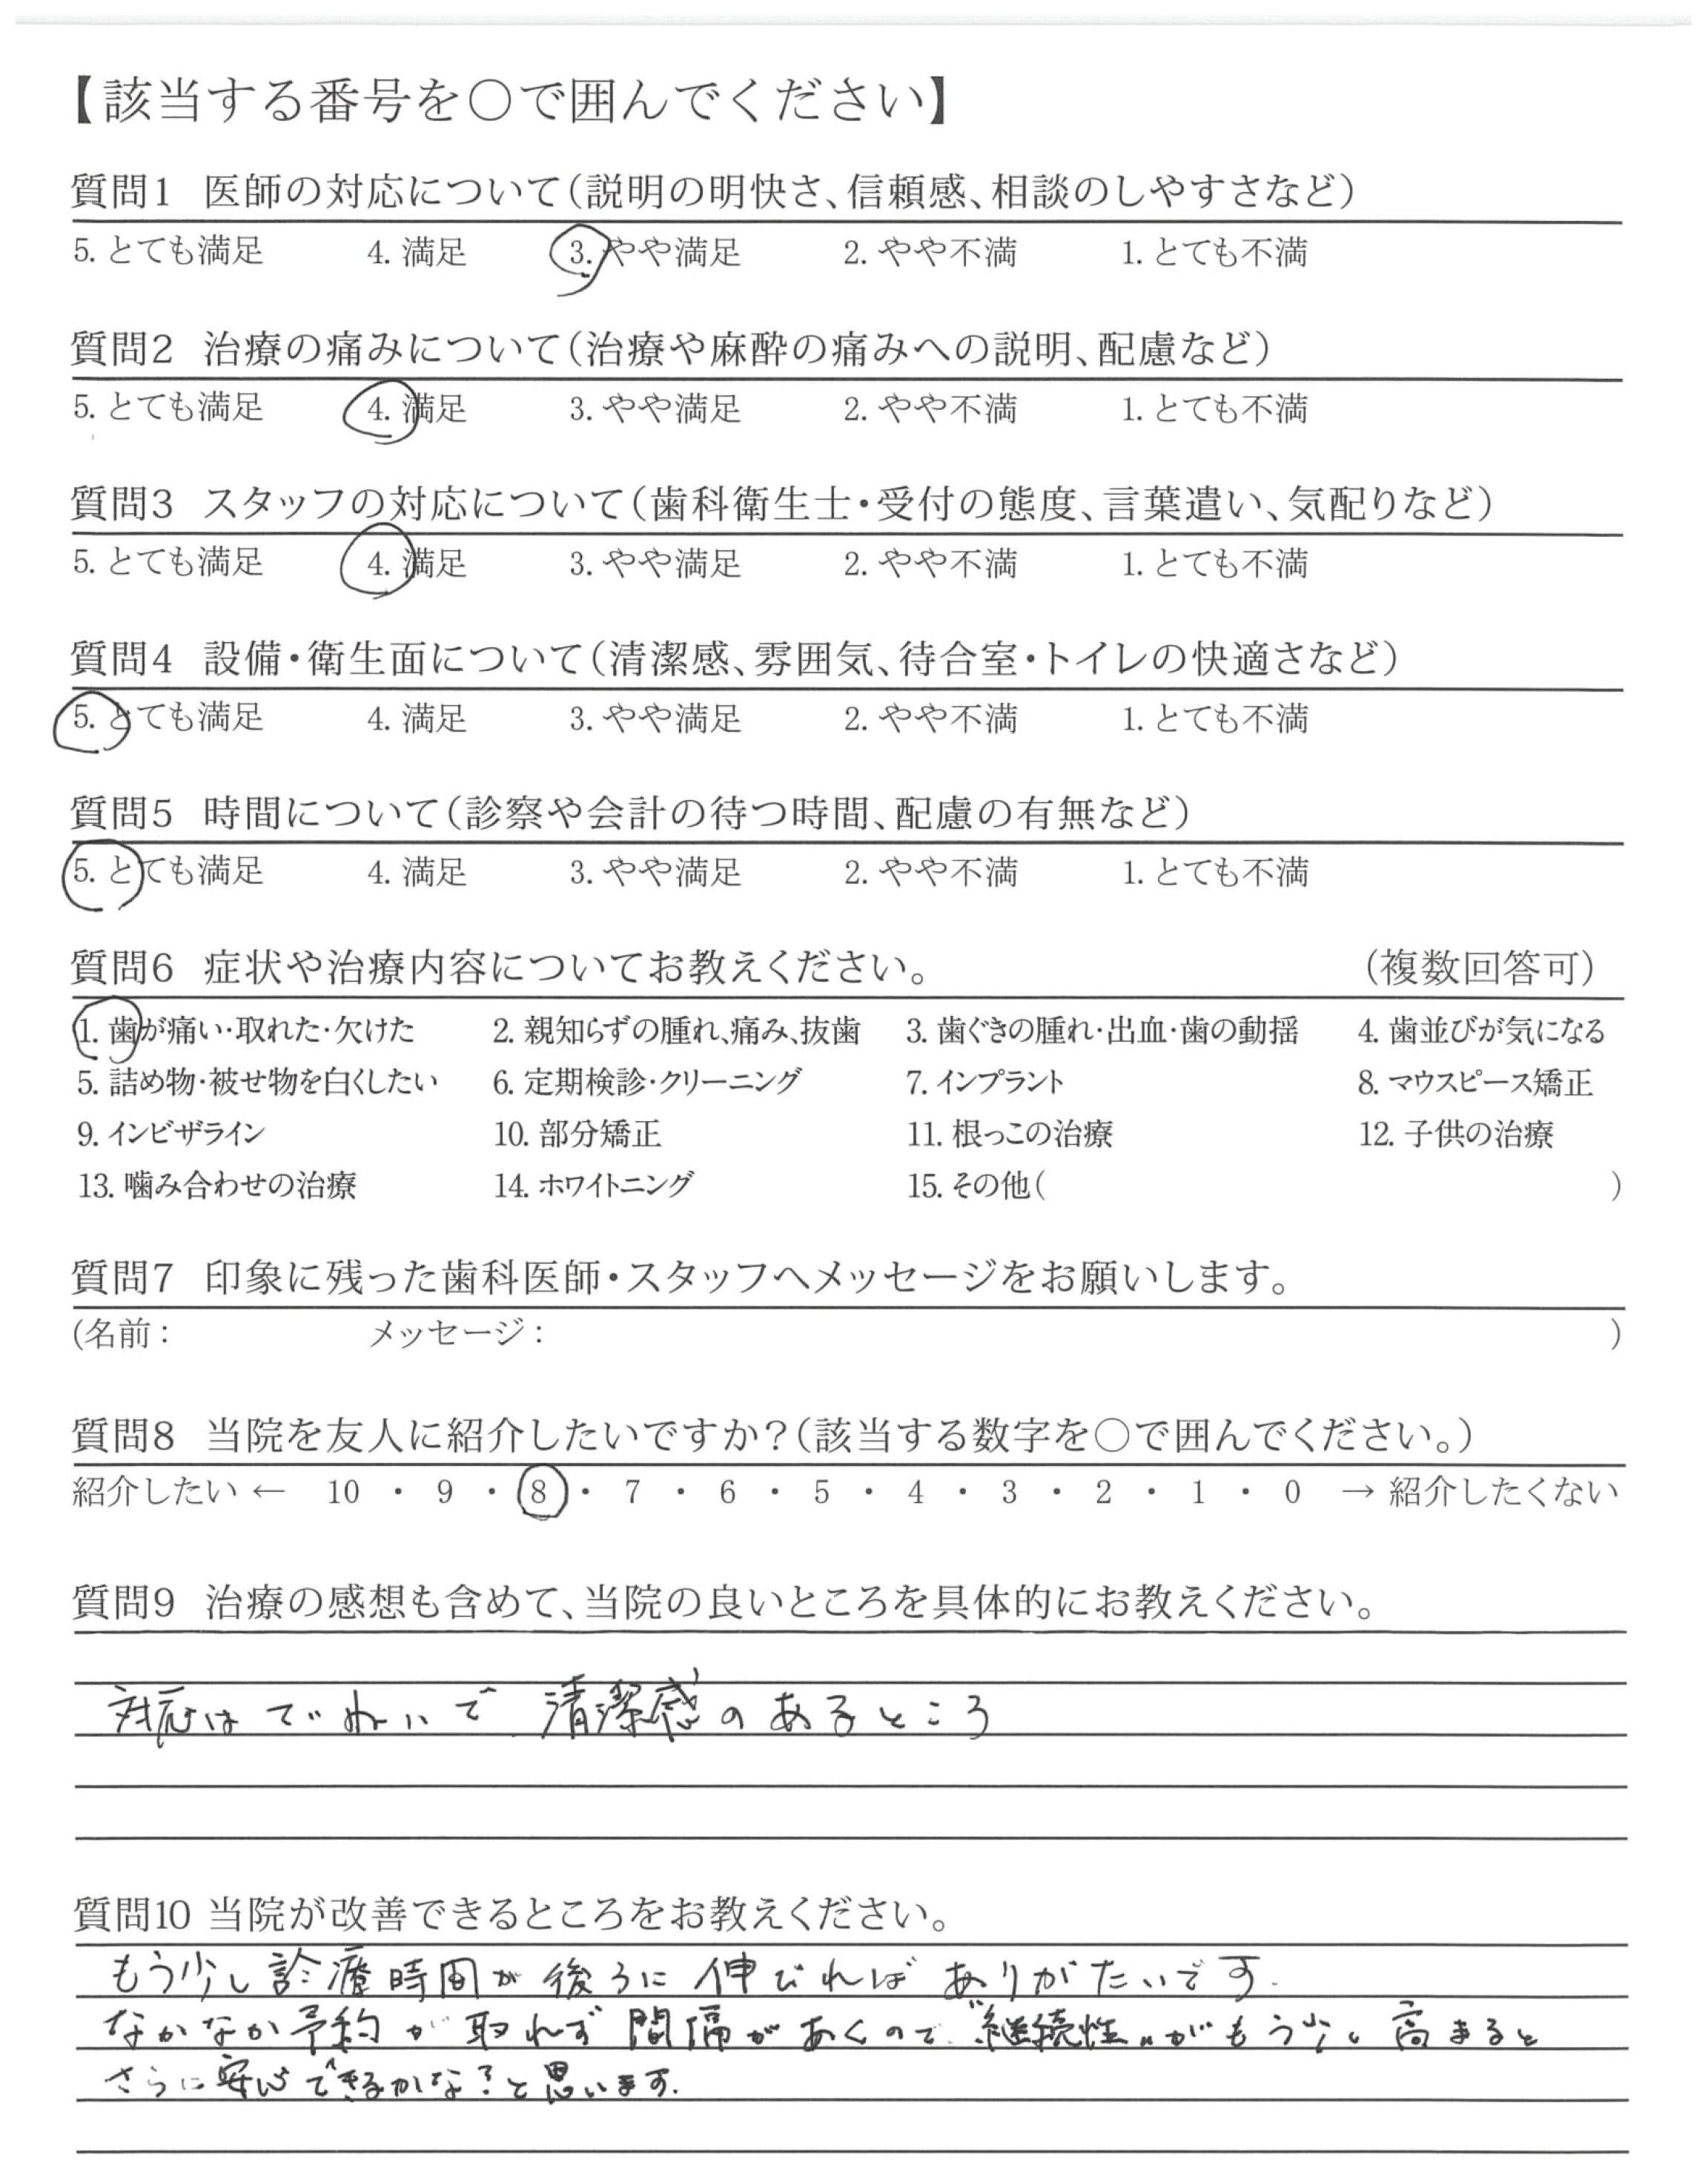 【該当する番号を○で囲んでください】
質問1 医師の対応について(説明の明快さ、信頼感、相談のしやすさなど)
5. とても満足 4. 満足 3. やや満足 2. やや不満 1. とても不満
質問2 治療の痛みについて(治療や麻酔の痛みへの説明、配慮など)
5. とても満足 4. 満足 3. やや満足 2. やや不満 1. とても不満
質問3 スタッフの対応について(歯科衛生士・受付の態度、言葉遣い、気配りなど)
5. とても満足 4. 満足 3. やや満足 2. やや不満 1. とても不満
質問4 設備・衛生面について(清潔感、雰囲気、待合室・トイレの快適さなど)
5. とても満足 4. 満足 3. やや満足 2. やや不満 1. とても不満
質問5 時間について(診察や会計の待つ時間、配慮の有無など)
5. とても満足 4. 満足 3. やや満足 2. やや不満 1. とても不満
質問6 症状や治療内容についてお教えください。 (複数回答可)
1. 歯が痛い・取れた・欠けた 2. 親知らずの腫れ、痛み、抜歯 3. 歯ぐきの腫れ・出血・歯の動揺 4. 歯並びが気になる
5. 詰め物・被せ物を白くしたい 6. 定期検診・クリーニング 7. インプラント 8. マウスピース矯正
9. インビザライン 10. 部分矯正 11. 根っこの治療 12. 子供の治療
13. 噛み合わせの治療 14. ホワイトニング 15. その他( )
質問7 印象に残った歯科医師・スタッフへメッセージをお願いします。
(名前: メッセージ: )
質問8 当院を友人に紹介したいですか?(該当する数字を○で囲んでください。)
紹介したい ← 10 ・ 9 ・ 8 ・ 7 ・ 6 ・ 5 ・ 4 ・ 3 ・ 2 ・ 1 ・ 0 → 紹介したくない
質問9 治療の感想も含めて、当院の良いところを具体的にお教えください。
対応はていねいで 清潔感のあるところ
質問10 当院が改善できるところをお教えください。
もう少し診療時間が後ろに伸びればありがたいです.
なかなか予約が取れず間隔があくので"継続性"がもう少し高まると
さらに安心できるかな?と思います.